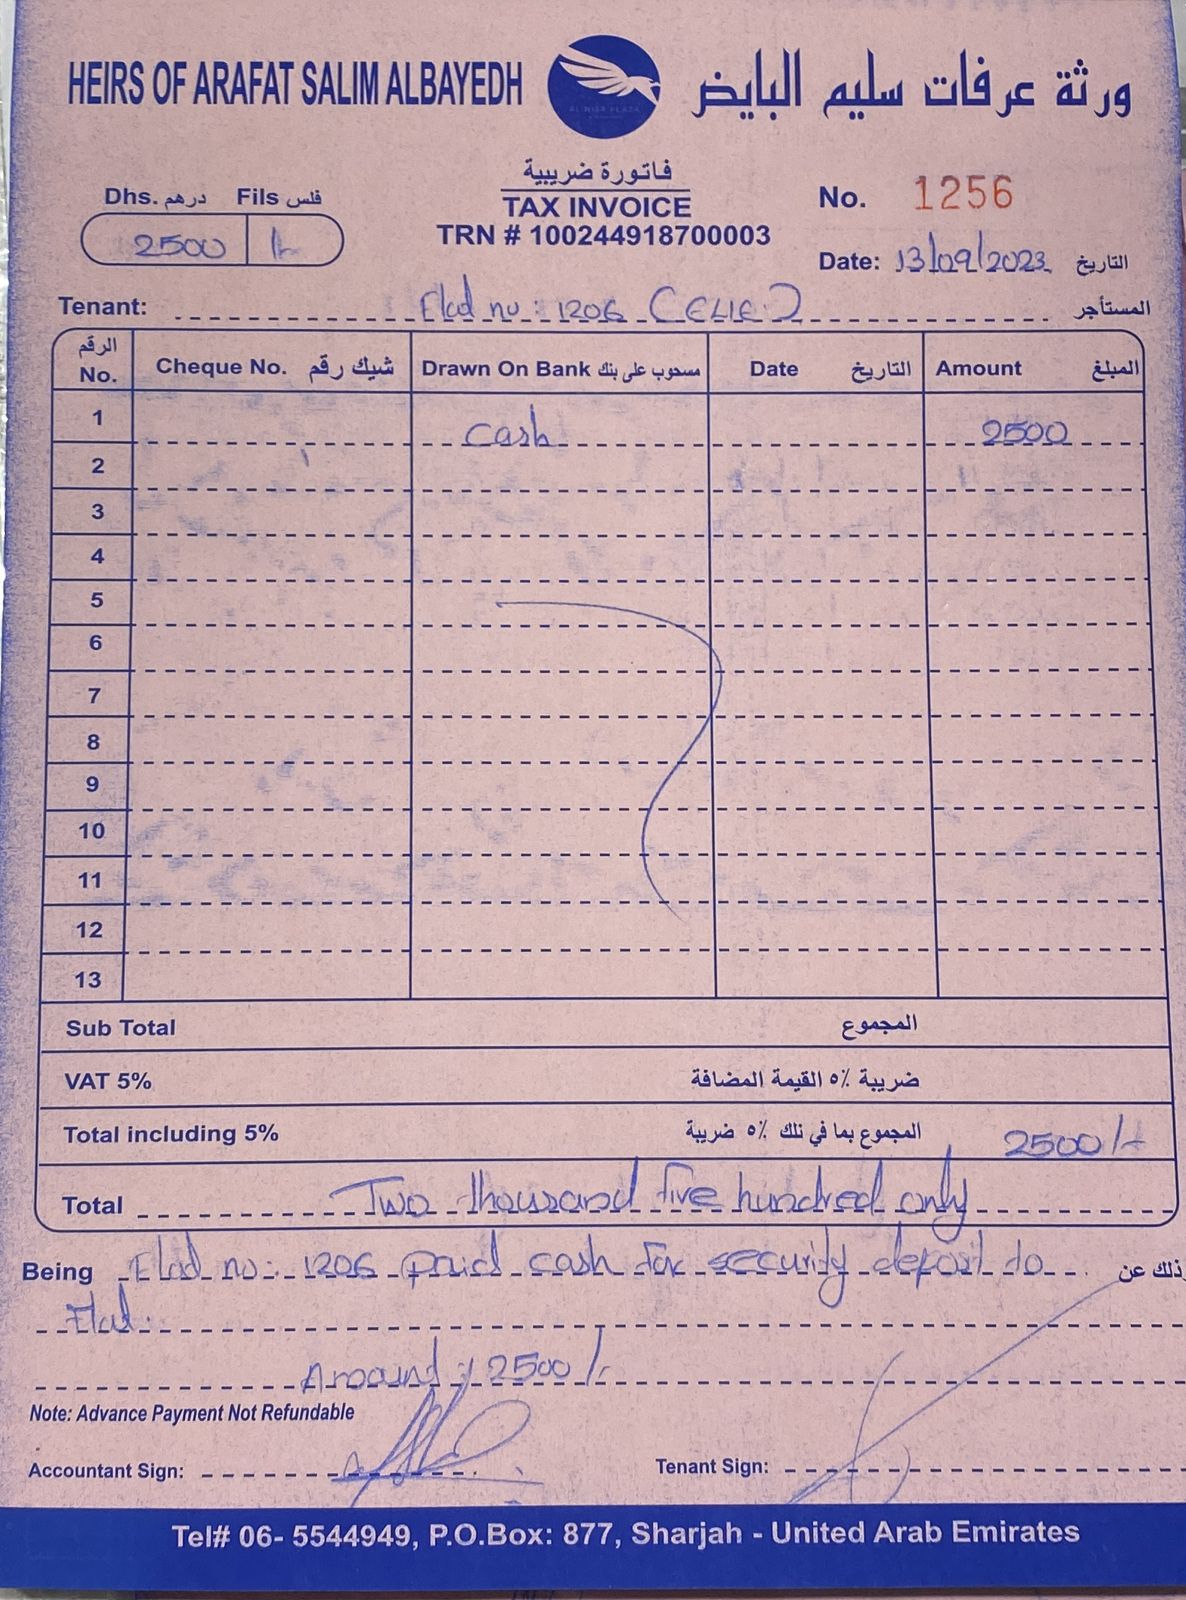 HEIRS OF ARAFAT SALIM ALBAYEDH ورثة عرفات سليم البايض
فاتورة ضريبية
TAX INVOICE
TRN # 100244918700003
Dhs. درهم Fils فلس
2500
No. 1256
Date: 13/09/2023 التاريخ
Tenant: Flad no: 1206 المستأجر
الرقم No. Cheque No. شيك رقم Drawn On Bank مسحوب على بنك Date التاريخ Amount المبلغ
1 cash 2500
2
3
4
5
6
7
8
9
10
11
12
13
Sub Total المجموع
VAT 5% ضريبة ٥٪ القيمة المضافة
Total including 5% المجموع بما في ذلك ٥٪ ضريبة 2500/-
Total Two thousand five hundred only
Being Flad no: 1206 paid cash for security deposit to ذلك عن
Flad.
Amound : 2500/-
Note: Advance Payment Not Refundable
Accountant Sign: Tenant Sign:
Tel# 06- 5544949, P.O.Box: 877, Sharjah - United Arab Emirates